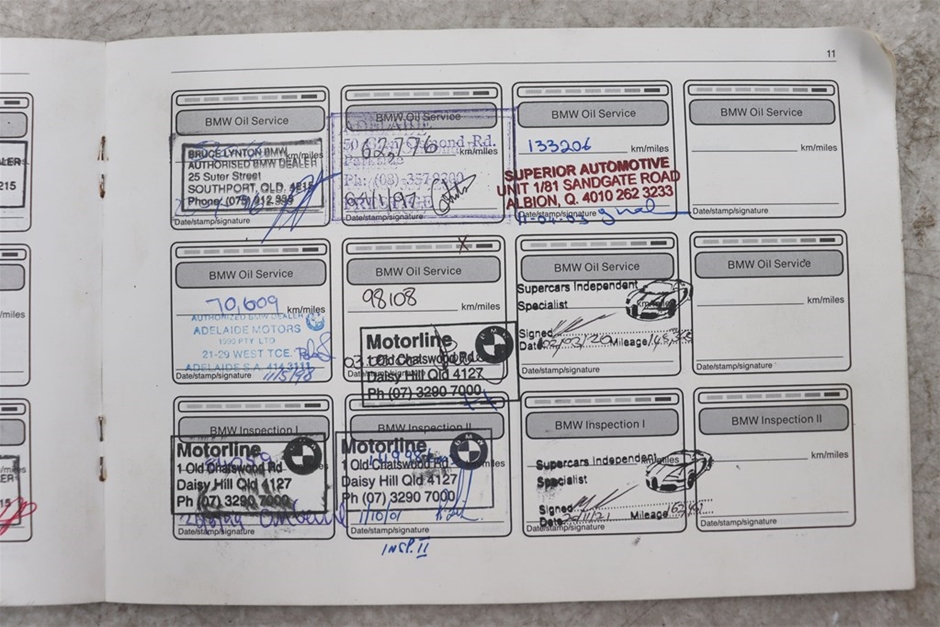 11
BMW Oil Service
km/miles
BRUCE LYNTON BMW
AUTHORISED BMW DEALER
25 Suter Street
SOUTHPORT, QLD. 4215
Phone: (075)
Date/stamp/signature
BMW Oil Service
ADELAIDE
62,776
km/miles
Rd.
Parkside
Ph: (08)
Date/stamp/signature
BMW Oil Service
133206
km/miles
SUPERIOR AUTOMOTIVE
UNIT 1/81 SANDGATE ROAD
ALBION, Q. 4010 262 3233
Date/stamp/signature
BMW Oil Service
km/miles
Date/stamp/signature
BMW Oil Service
70,609
km/miles
AUTHORIZED BMW DEALER
ADELAIDE MOTORS
1990 PTY LTD
21-29 WEST TCE.
ADELAIDE S.A.
11/5/98
Date/stamp/signature
X
BMW Oil Service
98108
km/miles
Motorline
1 Old Chatswood Rd
Daisy Hill Qld 4127
Ph (07) 3290 7000
BMW Oil Service
Supercars Independent
Specialist
km/miles
Signed
Date
Mileage
Date/stamp/signature
BMW Oil Service
km/miles
Date/stamp/signature
BMW Inspection I
Motorline
1 Old Chatswood Rd
Daisy Hill Qld 4127
Ph (07) 3290 7000
Date/stamp/signature
BMW Inspection II
km/miles
Motorline
1 Old Chatswood Rd
Daisy Hill Qld 4127
Ph (07) 3290 7000
1/10/01
Date/stamp/signature
INSP. II
BMW Inspection I
km/miles
Supercars Independent
Specialist
Signed
Date
Mileage
Date/stamp/signature
BMW Inspection II
km/miles
Date/stamp/signature